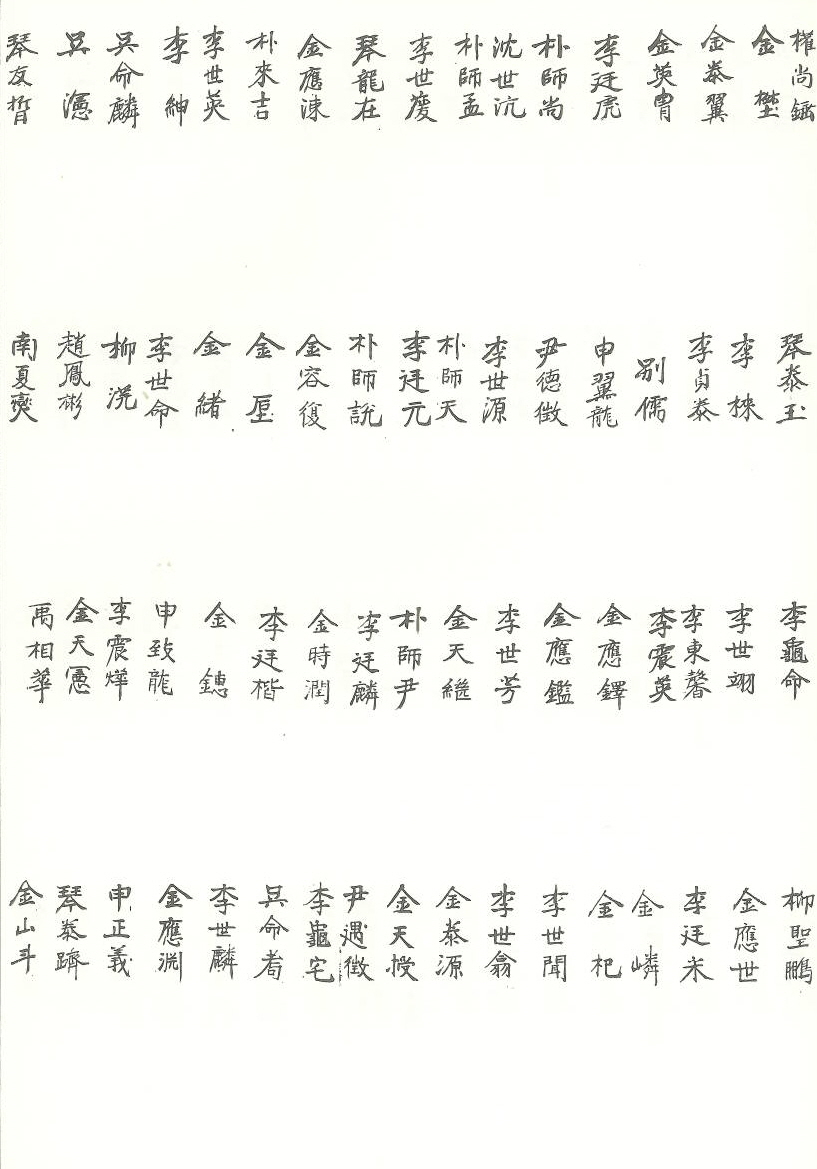 權尚鎰
金㙸
金泰翼
金英胄
李廷虎
朴師尚
沈世沆
朴師孟
李世𢋡
琴龍在
金應涑
朴來吉
李世英
李紳
吳命麟
吳濾
琴友晳
琴泰玉
李楝
李貞泰
別儒
申翼龍
尹德徵
李世源
朴師天
李廷元
朴師說
金容復
金垕
金緒
李世命
柳滉
趙鳳彬
南夏奭
李龜命
李世翊
李東馨
李震英
金應鐸
金應鑑
李世芳
金天繼
朴師尹
李廷麟
金時潤
李廷楷
金鏸
申致龍
李震燁
金天憲
禹相華
柳聖鵬
金應世
李廷米
金嶙
金杞
李世聞
李世翕
金泰源
金天授
尹遇徵
李龜宅
吳命耉
李世麟
金應淵
申正義
琴泰躋
金山斗